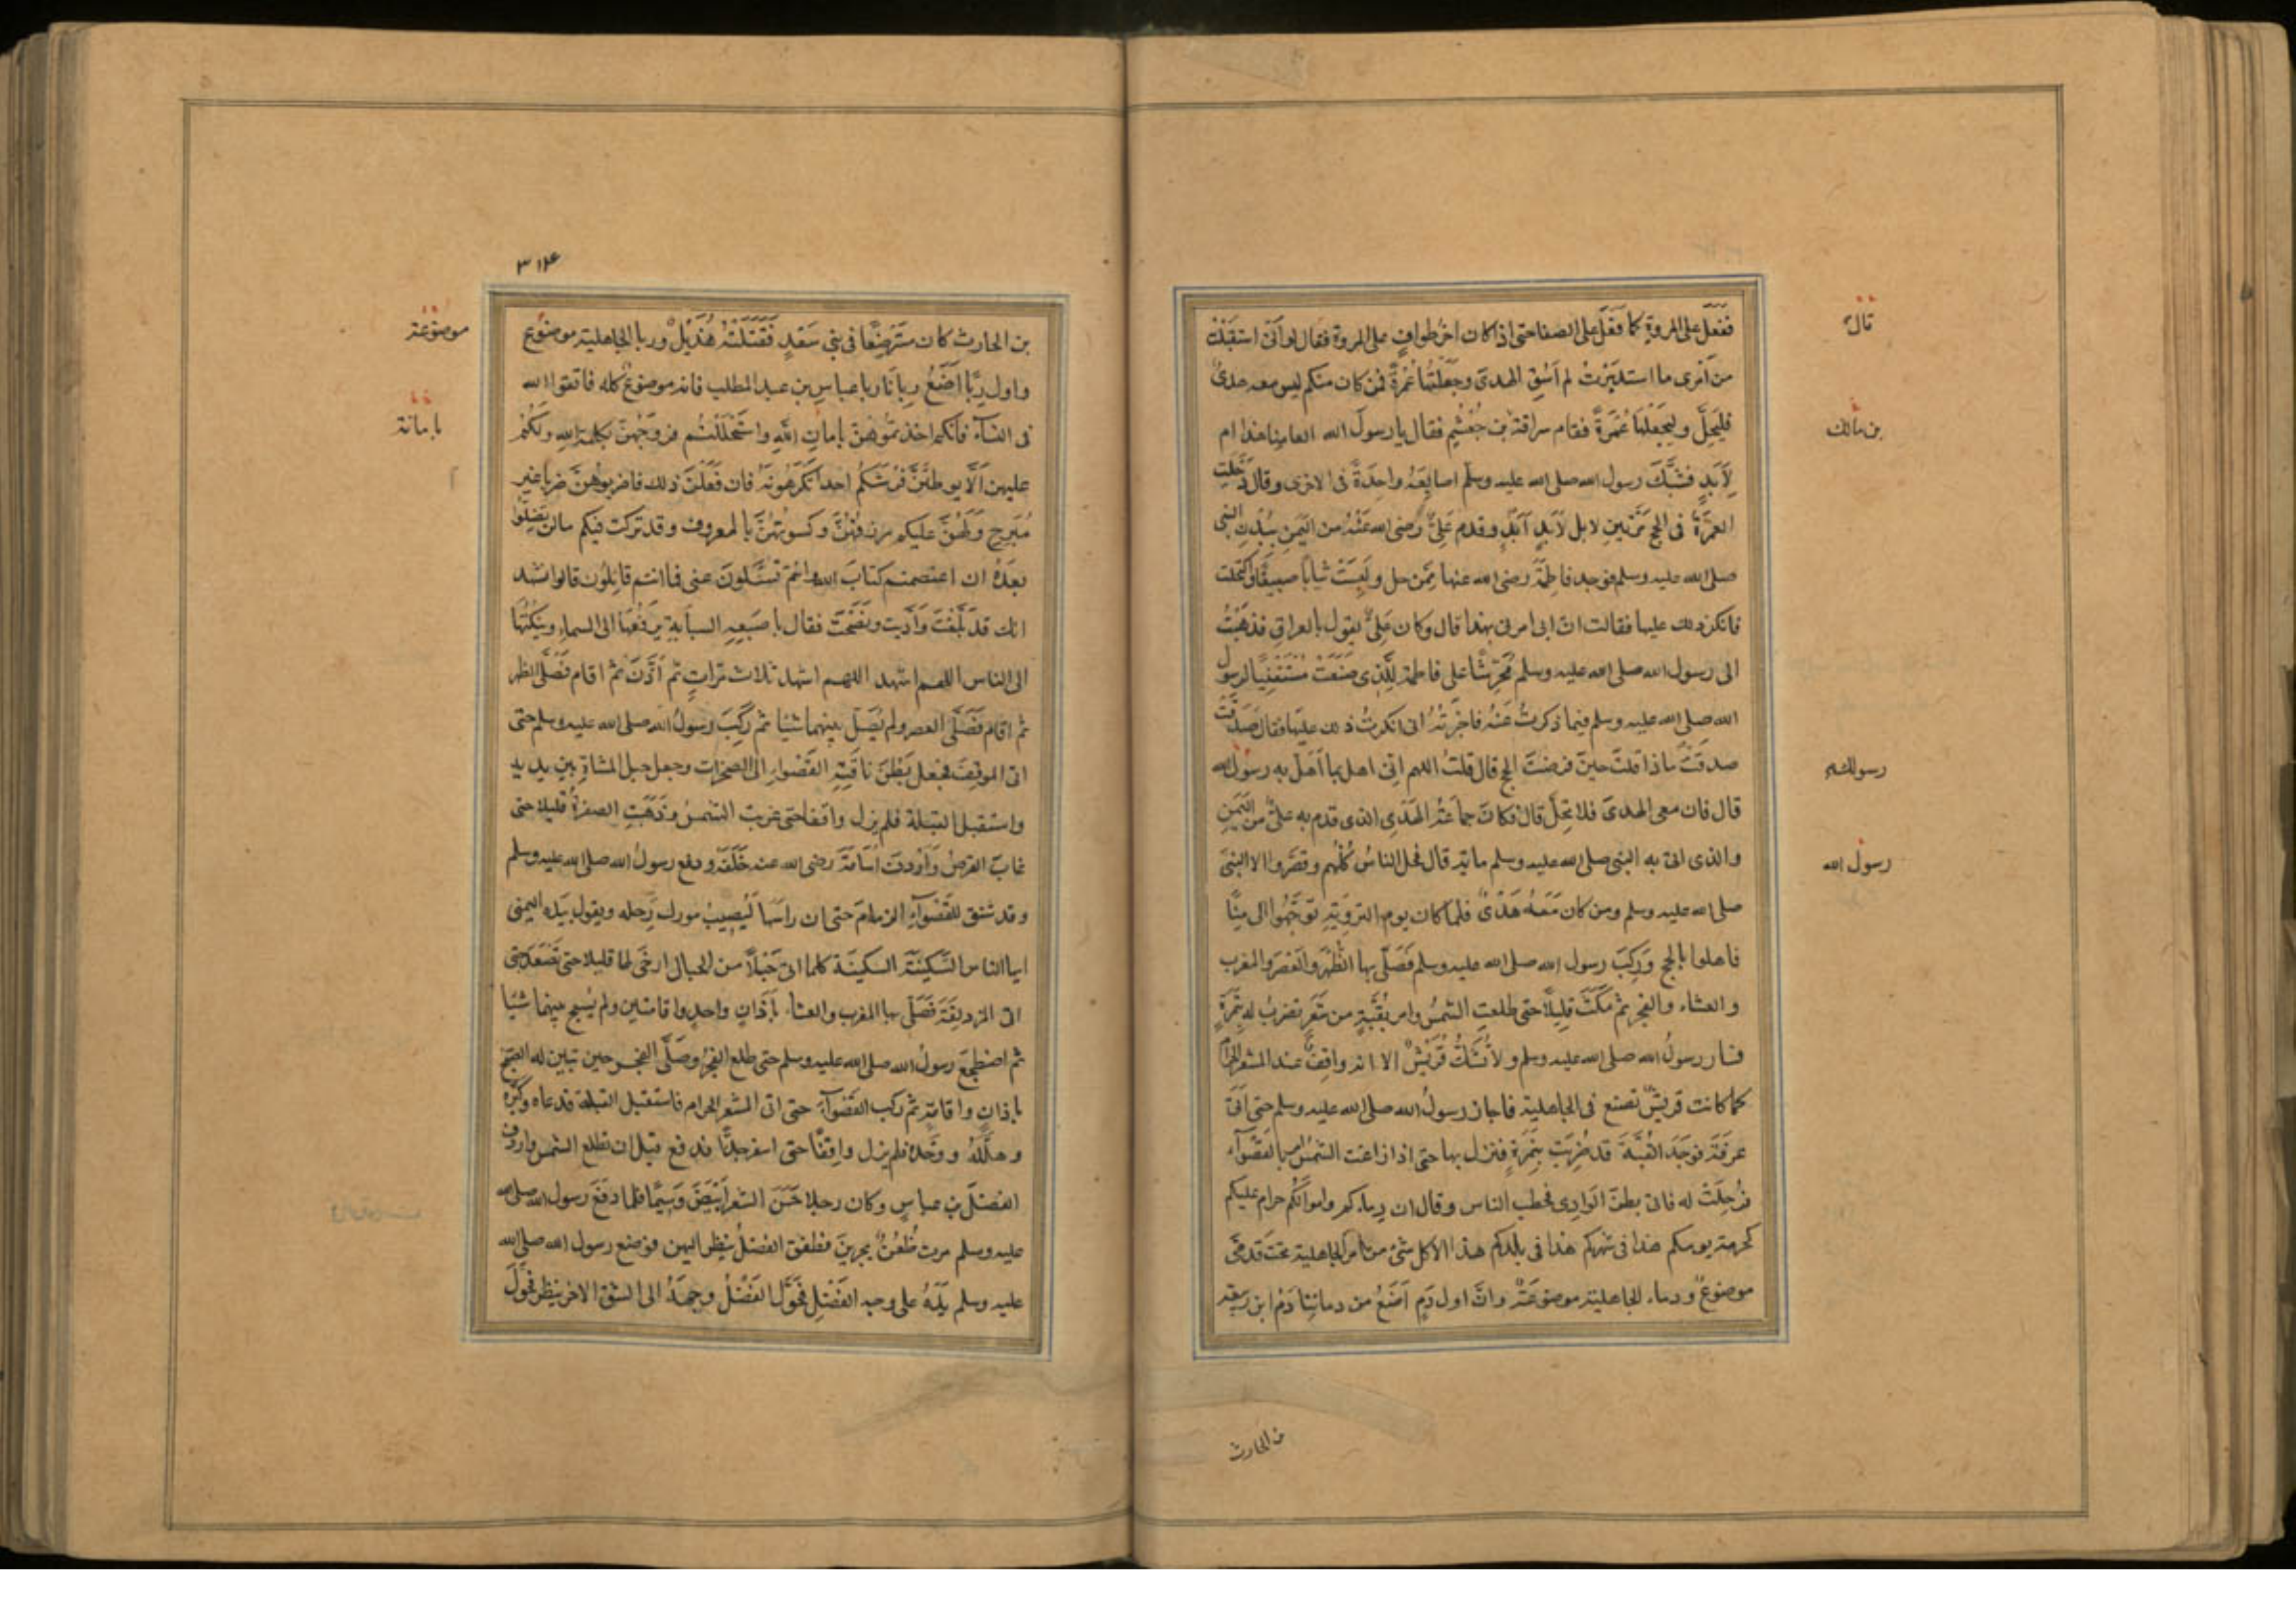 ففعل على المروة كما فَعَلَ على الصفا حتى اذا كان اخر طوافٍ على المروة فقال لو أنّى استقبلت
من أمرى ما استدبَرْتُ لم أَسُقِ الهدىَ وجَعَلْتُها عُمْرةً فمن كان منكم ليس معه هدىٌ
فليَحِلَّ وليجعَلْها عُمْرَةً فقام سراقة بن جُعْشُمٍ فقال يا رسولَ الله العامِنا هذا ام
لِأَبَدٍ فشَبَّكَ رسول الله صلى الله عليه وسلم اصابِعَهُ واحِدَةً فى الاخرى وقال دَخَلَتِ
العُمْرَةُ فى الحج مَرَّتينِ لا بل لأَبَدِ أبَدٍ وقدم عَلِىٌّ رضى الله عَنْهُ من اليَمَنِ ببُدْنِ النبى
صلى الله عليه وسلم فوجد فاطِمَةَ رضى الله عنها مِمَّن حل ولَبِسَتْ ثياباً صبيغاً واكتحلت
فانكر ذلك عليها فقالت ان ابى امرنى بهذا قال وكان عَلِىٌّ يقول بالعراق فذهَبْتُ
الى رسول الله صلى الله عليه وسلم مُحَرِّشًا على فاطمة لِلَّذى صَنَعَتْ مُسْتَفْتِيًا لرسول
الله صلى الله عليه وسلم فيما ذكرتْ عَنْهُ فاخبَرْتُهُ انى انكرتُ ذلك عليها فقال صَدَقَتْ
صدقَتْ ماذا قلتَ حينَ فرضتَ الحج قال قلتُ اللهم انّى اهل بما أهَلَّ به رسولُ الله
قال فان معى الهدىَ فلا تحِلَّ قال فكانَ جماعَةُ الهَدْىِ الذى قدم به علىٌّ من اليَمَنِ
والذى اتى به النبى صلى الله عليه وسلم ماية قال فحل الناسُ كُلُّهم وقصَّروا الا النبىَّ
صلى الله عليه وسلم ومن كان مَعَهُ هَدْىٌ فلما كان يوم الترويَةِ توَجَّهُوا الى مِنًا
فاهلوا بالحج وَرَكِبَ رسول الله صلى الله عليه وسلم فَصَلَّى بها الظُهْرَ والعَصْرَ والمغرب
والعشاء والفجر ثم مَكَثَ قليلًا حتى طلعتِ الشمسُ وامر بقُبَّةٍ من شَعَرٍ تضربُ له بنَمِرَةٍ
فسار رسولُ الله صلى الله عليه وسلم ولا تَشُكُّ قُرَيْشٌ الا انه واقِفٌ عند المشعر الحرام
كما كانت قريشٌ تصنع فى الجاهلية فاجاز رسولُ الله صلى الله عليه وسلم حتى اتى
عرفَةَ فوجَدَ القُبَّةَ قد ضُرِبَتْ بنَمِرَةٍ فنزل بها حتى اذا زاغت الشمسُ امر بالقَصْوآء
فرُحِلَتْ له فاتى بطنَ الوَادِى فخطب الناس وقال ان دماءكم واموالَكُم حرام عليكم
كحرمة يومكم هذا فى شهركم هذا فى بلدكم هذا الا كل شئٍ من امر الجاهلية تحتَ قدَمَىَّ
موضوعٌ ودماء الجاهلية موضوعَةٌ وانَّ اول دَمٍ اَضَعُ من دمائِنا دَمُ ابن ربيعة
قال
بن مالك
رسولك
رسول الله
بن الحارث
٣١٤
بن الحارث كان مسْتَرْضِعًا فى بنى سَعْدٍ فَقَتَلَتْهُ هُذَيْلٌ وربا الجاهلية موضوع
واول رِبًا اَضَعُ رِبانَا ربا عباسِ بن عبد المطلب فانه موضوعٌ كله فاتقوا الله
فى النسآء فانكم اخذتموهُنَّ بامانِ اللهِ واستَحْلَلْتُم فروجَهُنَّ بكلمة اللهِ ولكُم
عليهن اَلَّا يوطِئْنَ فُرُشَكُم احدا تَكْرَهُونَهُ فان فَعَلْنَ ذلك فاضربوهُنَّ ضربا غير
مُبَرِّحٍ ولَهُنَّ عليكم رزقُهُنَّ وكسوتُهُنَّ بالمعروف وقد تركت فيكم مالن تَضِلّوا
بعدَهُ ان اعتصمتم كتابَ الله وانتم تُسْئَلونَ عنى فما انتم قايِلُون قالوا نشهد
انك قد بَلَّغْتَ وَأدَّيت ونَصَحْتَ فقال باصبَعِهِ السبابةِ يرفَعُهَا الى السماء وينكُتُهَا
الى الناس اللهم اشهد اللهم اشهد ثلاث مَرّاتٍ ثم أذَّنَ ثم اقام فصَلَّى الظهر
ثم اقام فَصَلَّى العصر ولم يُصَلِّ بينهما شيًا ثم رَكِبَ رسولُ الله صلى الله عليه وسلم حتى
اتى الموقِفَ فجعل بَطْنَ ناقَتِهِ القَصْواءِ الى الصخرات وجعل حبل المشاةِ بين يديه
واستقبل القبلة فلم يزل واقفا حتى غربت الشمسُ وذَهَبَتِ الصفرةُ قليلا حتى
غابَ القرصُ وَأرْدفَ أُسَامَةَ رضى الله عنه خَلْفَهُ ودفع رسولُ الله صلى الله عليه وسلم
وقد شنق للقَصْوآءِ الزمامَ حتى ان راسَها لَيُصِيبُ مورك رَحِله ويقول بيَدِه اليمنى
ايها الناس السَّكِينَةَ السكينَةَ كلما اتى حَبْلًا من الحبال ارخَى لها قليلا حتى تَصْعَدَ حتى
اتى المزدلِفَةَ فَصَلَّى بها المغرب والعشاء بأذَانٍ واحدٍ واقامتين ولم يُسَبِّح بينهما شيًا
ثم اضطجعَ رسولُ الله صلى الله عليه وسلم حتى طلع الفجرُ وصَلَّى الفجر حين تبين له الصبح
باذانٍ واقامةٍ ثم ركب القَصْوآءَ حتى اتى المشعر الحرام فاستقبل القبلة فدعاه وكبَّره
وهلَّلَهُ ووحَّدَه فلم يزل واقِفًا حتى اسفر جدًّا فدفع قبل ان تطلع الشمس واردف
الفضلَ بن عباسٍ وكان رجلا حَسَنَ الشعر أَبْيَضَ وَسِيمًا فلما دفَعَ رسول الله صلى الله
عليه وسلم مرت ظُعُنٌ يجرينَ فطفق الفضلُ ينظر اليهن فوضع رسول الله صلى الله
عليه وسلم يدَهُ على وجه الفَضْلِ فحَوَّلَ الفَضْلُ وجهَهُ الى الشق الاخر ينظر فَحَوَّلَ
موضوعة
بامانة